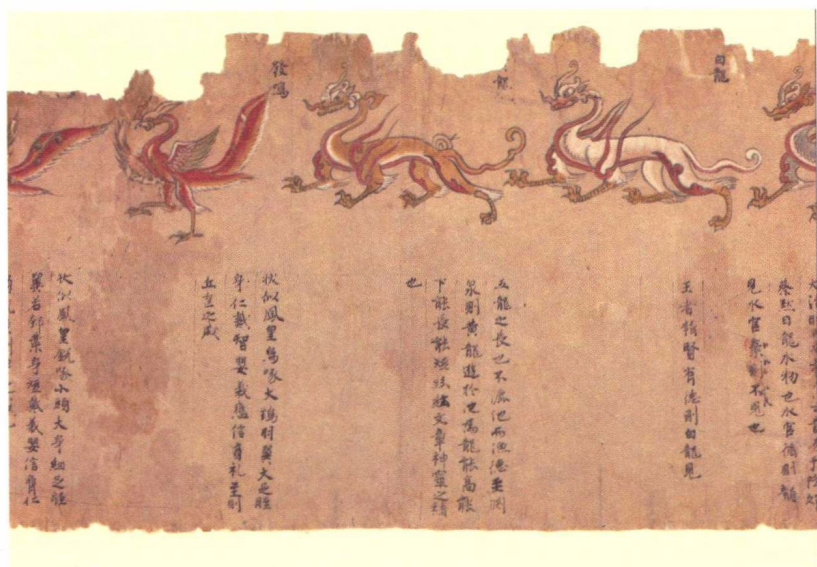 白龍
蔡默曰龍水物也水官脩則龍
見水官棄則不見也
王者 賢有德則白龍見
龍
五龍之長也不漉池而漁德至淵
泉則黃龍遊於池為龍能高能
下能長能短 文章神靈之精
也
發鳴
狀似鳳皇鳥喙大頸羽翼大足脛
身仁戴智嬰義膺信背礼至則
之感
狀似鳳皇銳喙小頭大身細足脛
翼若 葉身 戴義嬰信膺仁